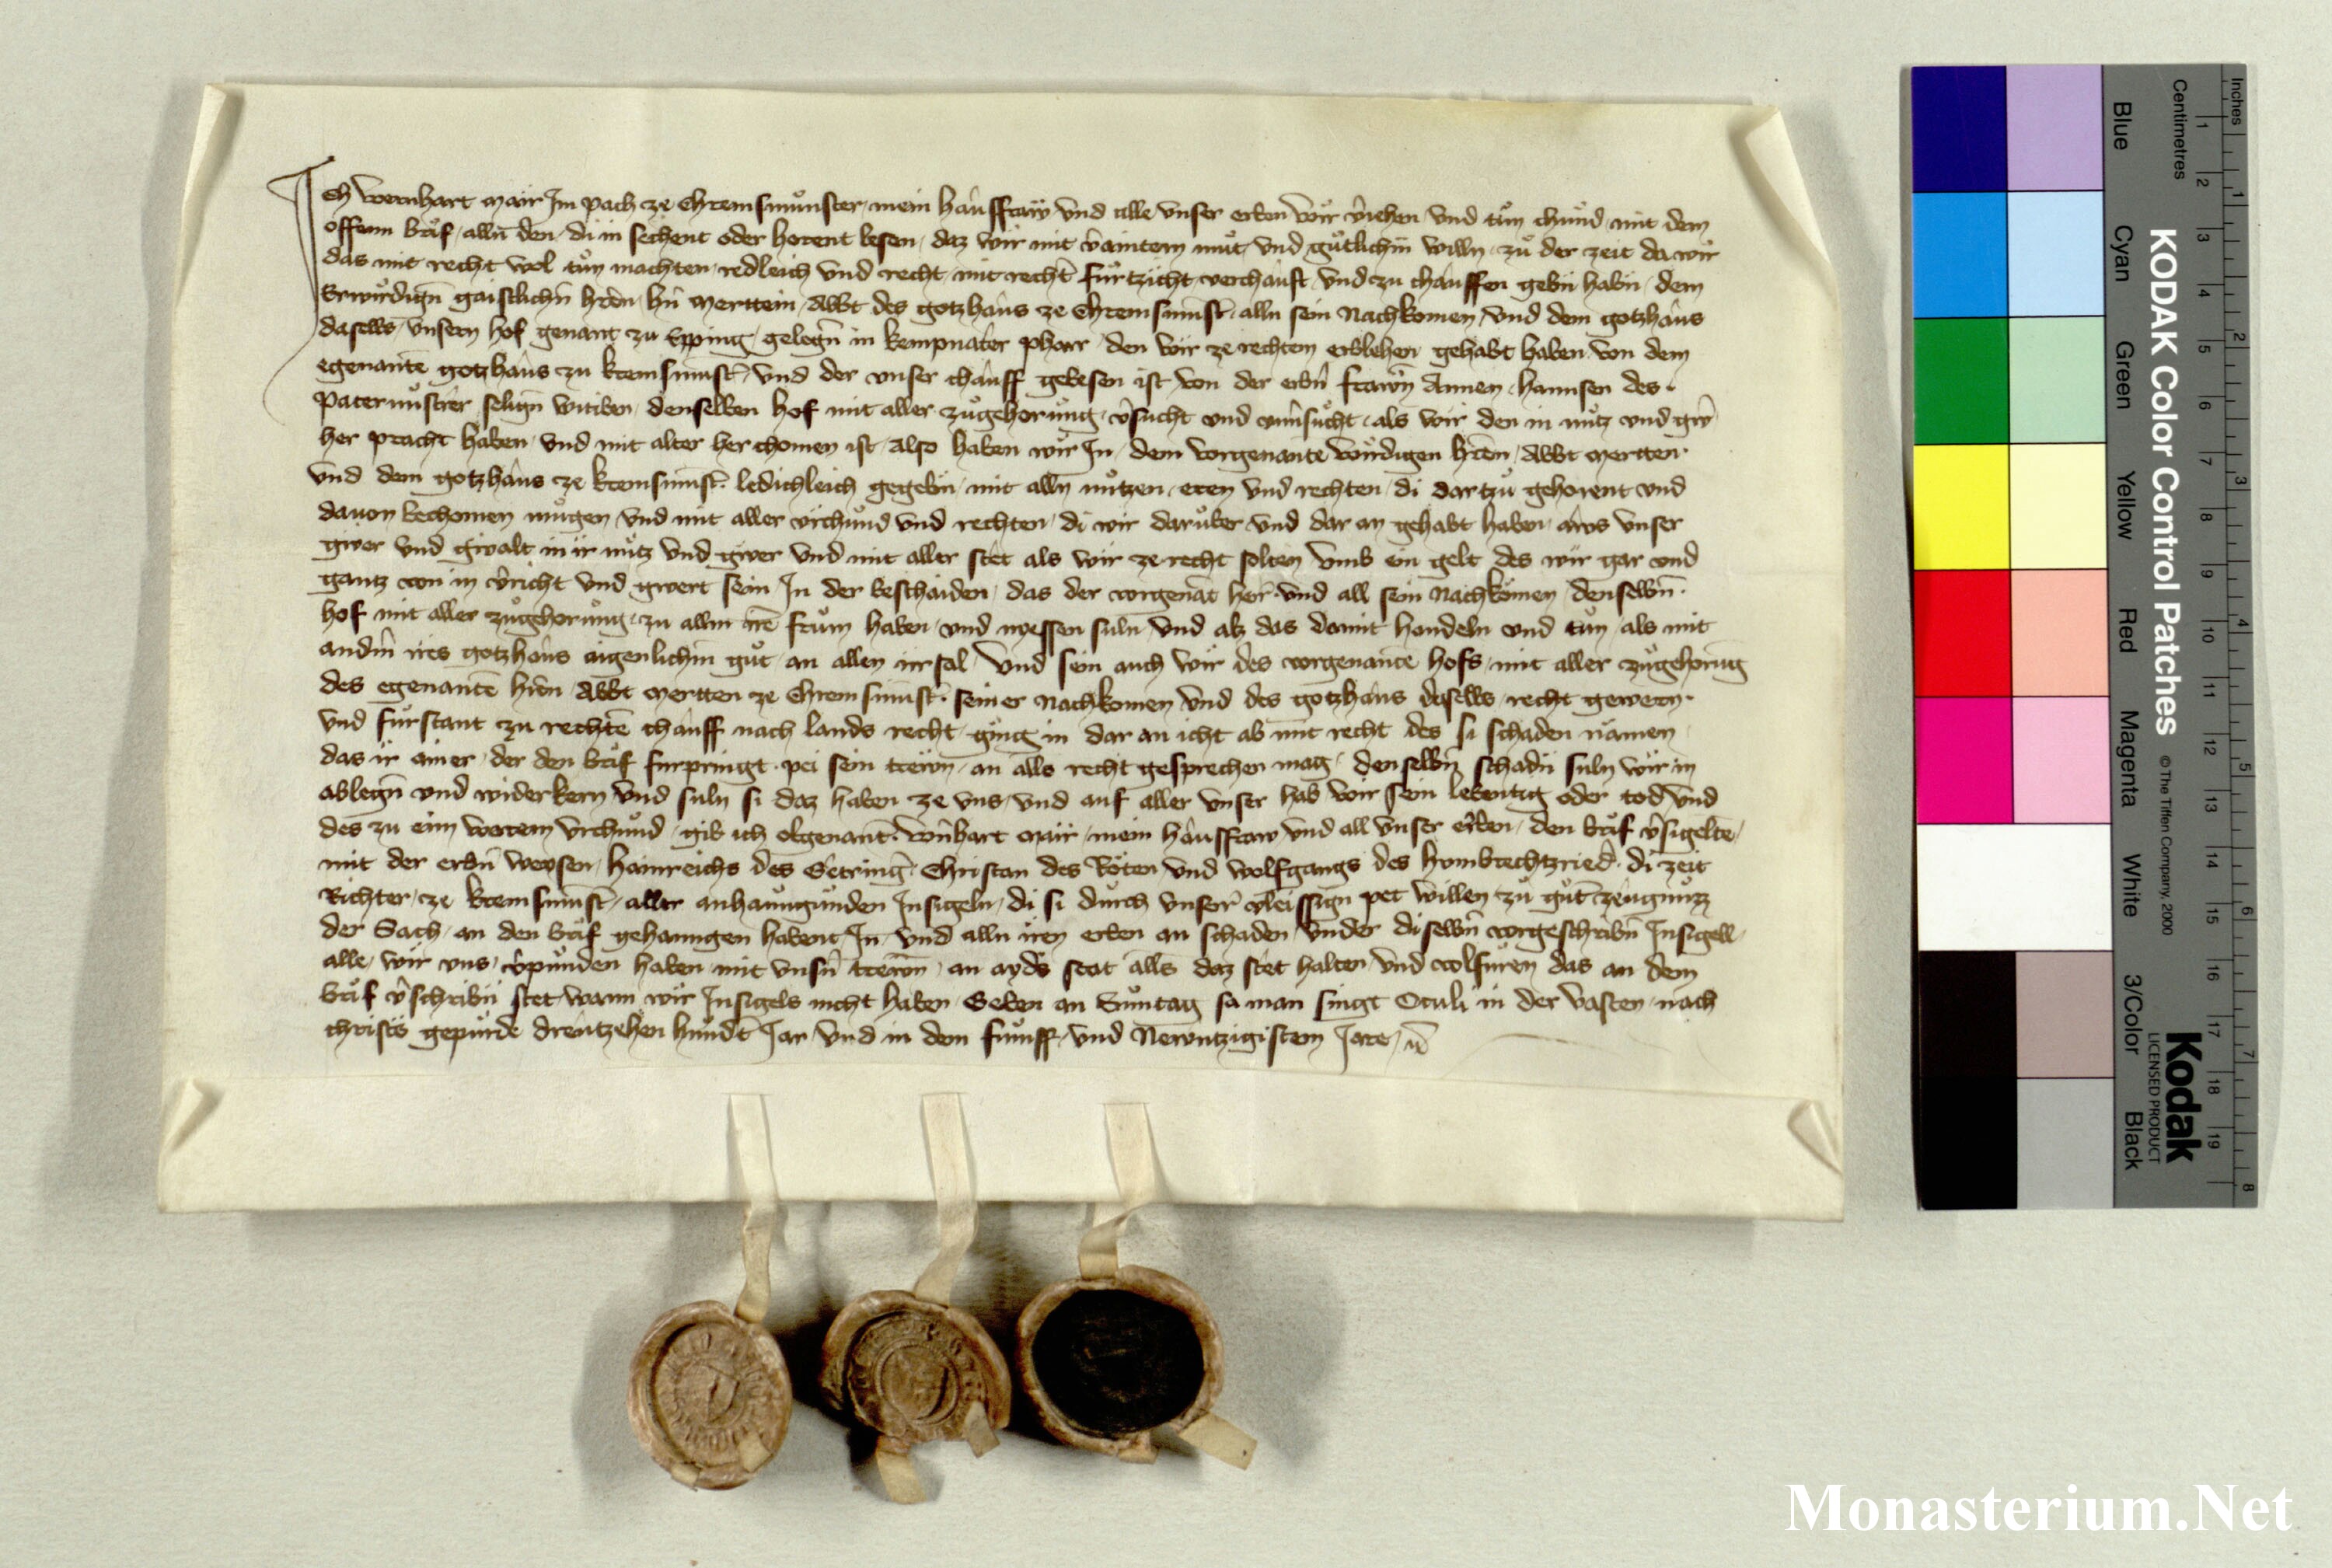 Ich Wernhart Mair Im pach ze Chremsmůnster mein hausfraw vnd alle vnser erben wir v̂iehen vnd tůn chůnd mit dem
offenn brief allen̄ den di in sehent oder horent lesen daz wir mit v̂aintem můt vnd gůtlichm̄ willn zů der zeit da wir
das mit recht wol tůn machten redleich vnd recht mit recht̄ fůrtzicht verchauft vnd zu chauffen gebn̄ habn̄ dem
Erwirdign̄ gaistlichn̄ hr̄en hn̄ Merttein Abbt des gotzhaus ze Chremsmunst̄ alln sein Nachkomen vnd dem gotzhaus
daselbs vnsern hof genant zu Epping gelegn̄ in kempnater pharr den wir ze rechtem erblehen gehabt haben von dem
egenante gotzhaus zu kremsmunst̄ vnd der vnser chauff gebesen ist von der erbn̄ frawn̄ Annen hannsen des
Paternustrer selign̄ witiben denselben hof mit aller zůgehorůng v̂sucht vnd vnv̂sůcht als wir den in nůtz vnd gw̄
her pracht haben vnd mit alter her chomen ist Also haben wir In dem vorgenante wirdigen hr̄en Abbt Mertten
vnd dem gotzhaus ze kremsmunst̄ ledichleich gegebn̄ mit alln nůtzen eren vnd rechten di dartzů gehorent vnd
dauon bechomen můgen vnd mit aller vrchůnd vnd rechten di wir darůber vnd dar an gehabt haben aws vnser
gwer vnd gwalt in ir nůtz vnd gwer vnd mit aller stet als wir ze recht solten vmb ein gelt des wir gar vnd
gantz von in v̂richt vnd gwert sein In der beschaiden das der vorgenāt her̄ vnd all sein Nachkomen denselbn̄
hof mit aller zůgehorůng zu allm ir̄e frům haben vnd nyessen suln vnd alz das damit handeln vnd tůn als mit
andm̄ irs gotzhaus aigenlichm gůt an allen irrsal vnd sein auch wir des vorgenante hofs mit aller zůgehorūg
des egenante hr̄en Abbt Mertten ze Chremsmunst̄ seiner Nachkomen vnd des gotzhaus daselbs recht gewern
vnd fůrstant zu rechte chauff nach lands recht gieng in dar an icht ab mit recht des si schaden namen
das ir ainer der den brief furpringt pei sein trewn̄ an alls recht gesprechen mag denselbn̄ schadn̄ suln wir in
ablegn̄ vnd widerkern vnd suln si daz haben ze vns vnd auf aller vnser hab wir sein lebentig oder tod vnd
des zu eim warem vrchund gib ich obgenant̄ Wn̂hart Mair mein hausfraw vnd all vnser erben den brief v̂sigelte
mit der erbn̄ weysen hainreichs des Setrinḡ Christan des Roten vnd wolfgangs des hombrechtzried̄ di zeit
Richter ze kremsmunst̄ aller anhanngůnden Insigeln di si durch vnser vleissign pet willen zů gůt̄ zeugnůzz
der Sach an den brief gehanngen habent In vnd alln iren erben an schaden vnder diselbn̄ vorgeschribn̄ Insigell
alle wir vns v̂punden haben mit vnsn̄ trewn̄ an ayds stat alls daz stet halten vnd volfuren das an dem
brief v̂schribn̄ stet wann wir Insigels nicht haben Geben an Suntag so man singt Oculi in der vasten nach
christs gepurde dreutzehen hundt̄ Jar vnd in dem funff vnd Newntzigistem Jare
Inches
Centimetres
KODAK Color Control Patches
© The Tiffen Company, 2000
Kodak
LICENSED PRODUCT
Blue
Cyan
Green
Yellow
Red
Magenta
White
3/Color
Black
Monasterium.Net